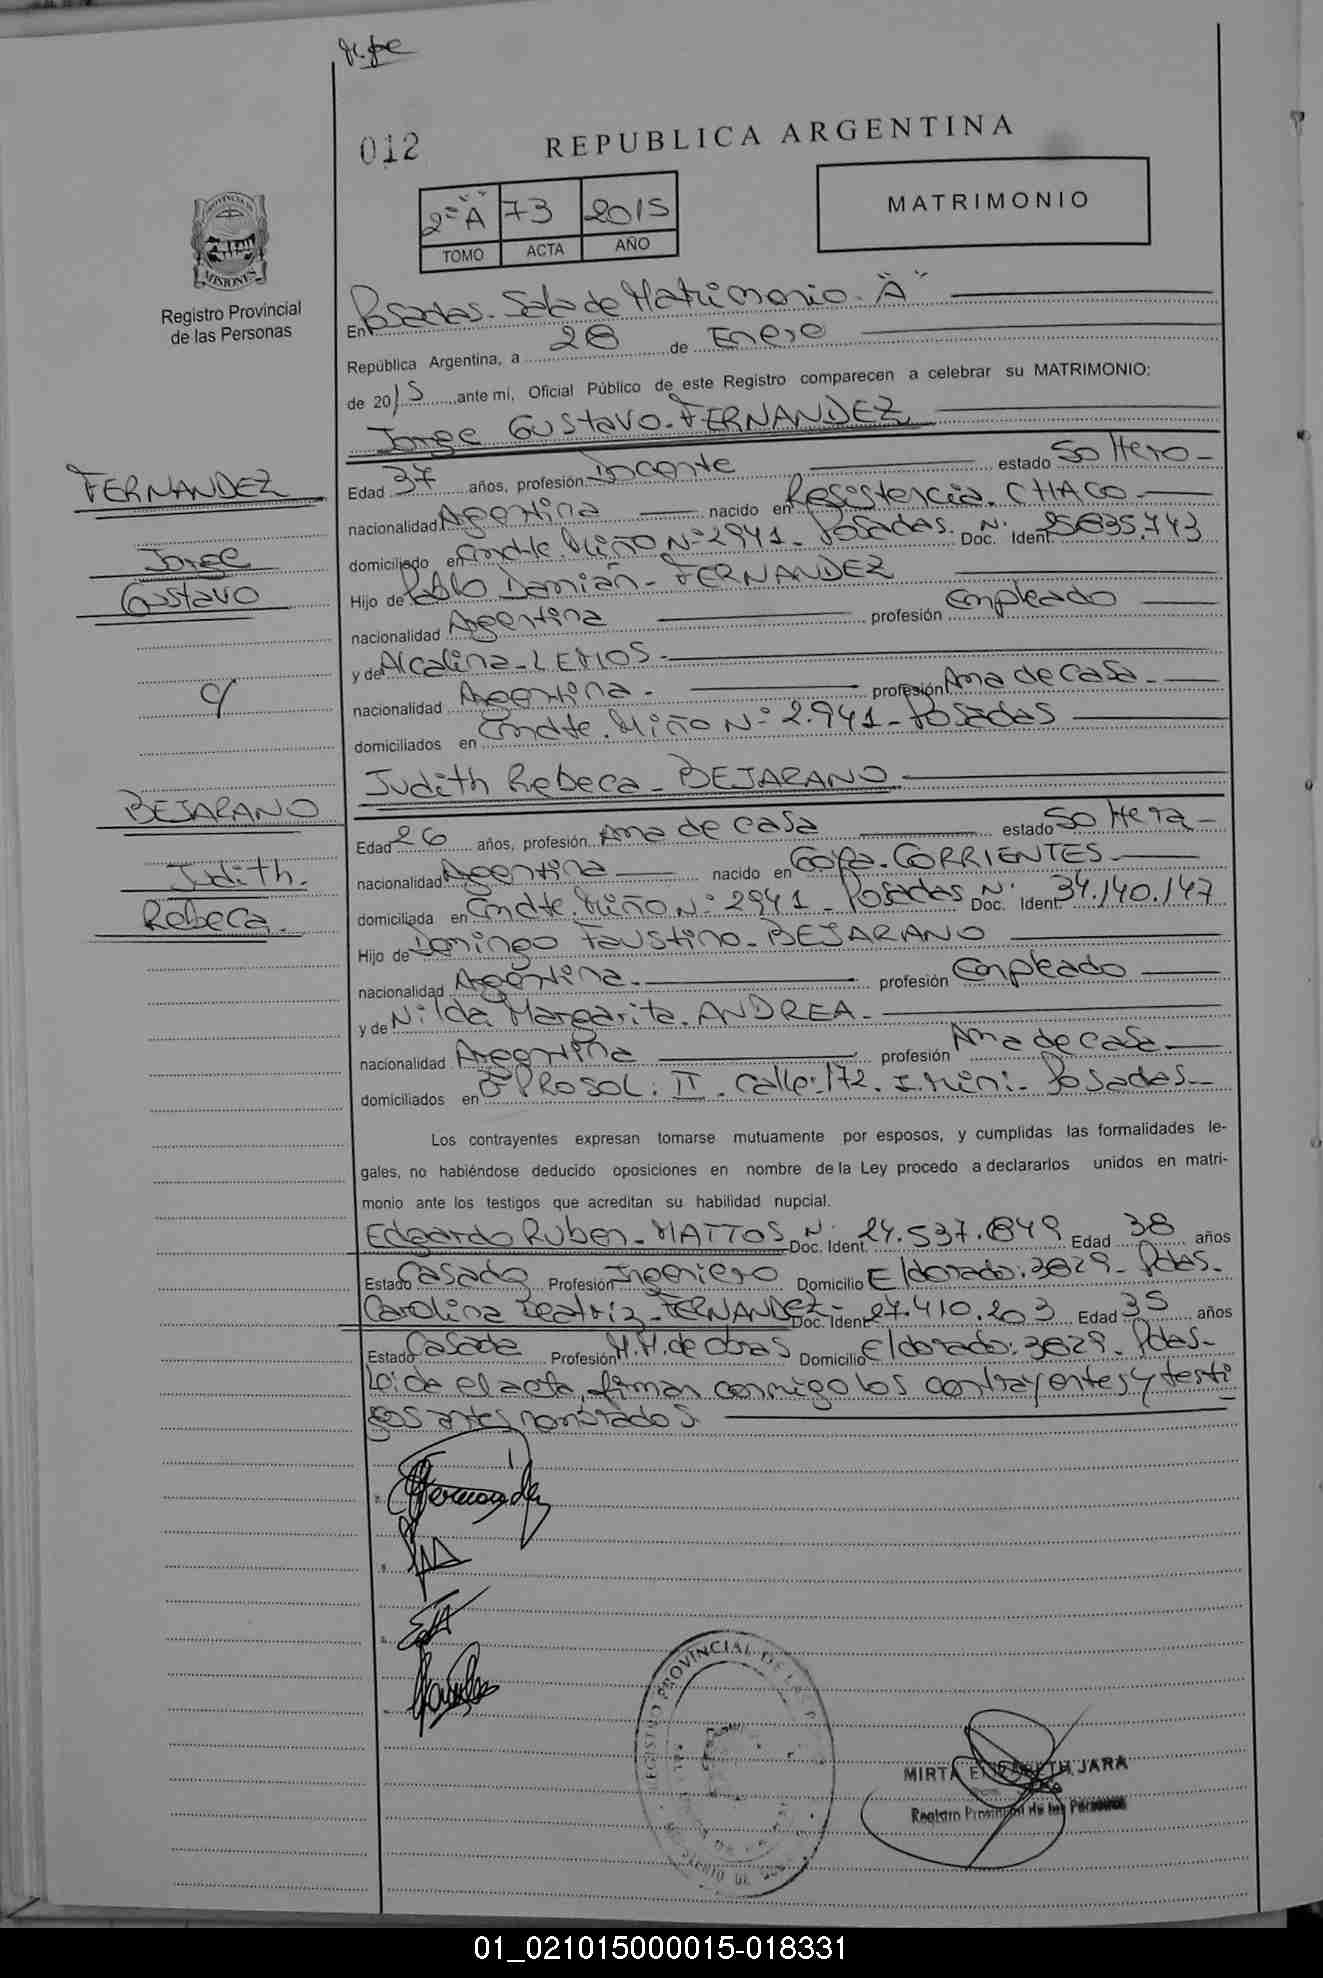 012
REPUBLICA ARGENTINA
2º "A" 73 2015
TOMO ACTA AÑO
MATRIMONIO
PROVINCIA DE
MISIONES
Registro Provincial
de las Personas
En Posadas. Sala de Matrimonio. "A"
República Argentina, a 28 de Enero
de 2015, ante mí, Oficial Público de este Registro comparecen a celebrar su MATRIMONIO:
Jorge Gustavo. FERNANDEZ
FERNANDEZ
Jorge
Gustavo
c/
BEJARANO
Judith.
Rebeca.
Edad 37 años, profesión Docente estado Soltero-
nacionalidad Argentina nacido en Resistencia. CHACO
domiciliado en Cmdte. Miño Nº 2941- Posadas. Nº Doc. Ident. 25.835.743
Hijo de Pablo Damián- FERNANDEZ
nacionalidad Argentina profesión Empleado
y de Alcalina- LEMOS-
nacionalidad Argentina- profesión Ama de casa-
domiciliados en Cmdte. Miño Nº 2.941- Posadas
Judith Rebeca- BEJARANO
Edad 26 años, profesión Ama de casa estado Soltera-
nacionalidad Argentina nacido en Goya- CORRIENTES-
domiciliada en Cmdte. Miño Nº 2941- Posadas Nº Doc. Ident. 34.140.147
Hijo de Domingo Faustino- BEJARANO
nacionalidad Argentina. profesión Empleado
y de Nilda Margarita. ANDREA-
nacionalidad Argentina profesión Ama de casa-
domiciliados en PROSOL. II. calle: 172. I. Miní- Posadas-
Los contrayentes expresan tomarse mutuamente por esposos, y cumplidas las formalidades le-
gales, no habiéndose deducido oposiciones en nombre de la Ley procedo a declararlos unidos en matri-
monio ante los testigos que acreditan su habilidad nupcial.
Edgardo Ruben- MATTOS Nº Doc. Ident. 24.537.849 Edad 38 años
Estado Casado Profesión Ingeniero Domicilio Eldorado: 3829- Pdas-
Carolina Beatriz- FERNANDEZ- Doc. Ident. 27.410.203 Edad 35 años
Estado Casada Profesión M.M. de obras Domicilio Eldorado: 3829- Pdas-
Leida el acta, firman conmigo los contrayentes y testi
gos antes nombrados.
Fernandez
REGISTRO PROVINCIAL DE LAS
MIRTA ELIZABETH JARA
Registro Provincial de las Personas
01_021015000015-018331